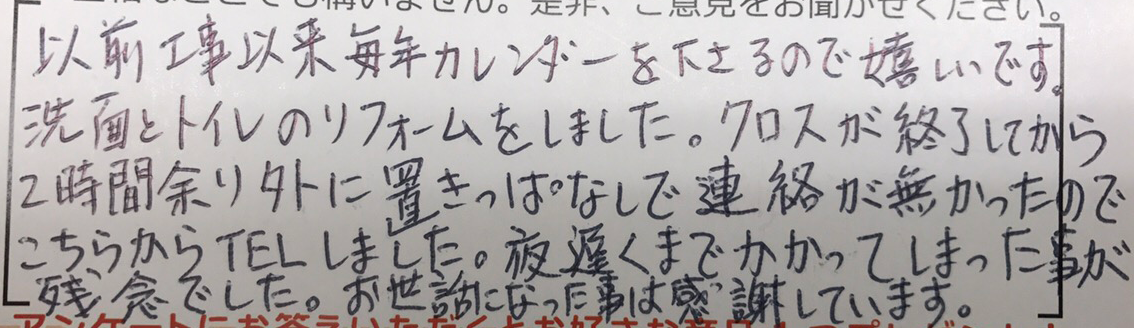 是非、ご意見をお聞かせください。
以前工事以来毎年カレンダーを下さるので嬉しいです。
洗面とトイレのリフォームをしました。クロスが終了してから
2時間余り外に置きっぱなしで連絡が無かったので
こちらからTELしました。夜遅くまでかかってしまった事が
残念でした。お世話になった事は感謝しています。
アンケートにお答えいただくと